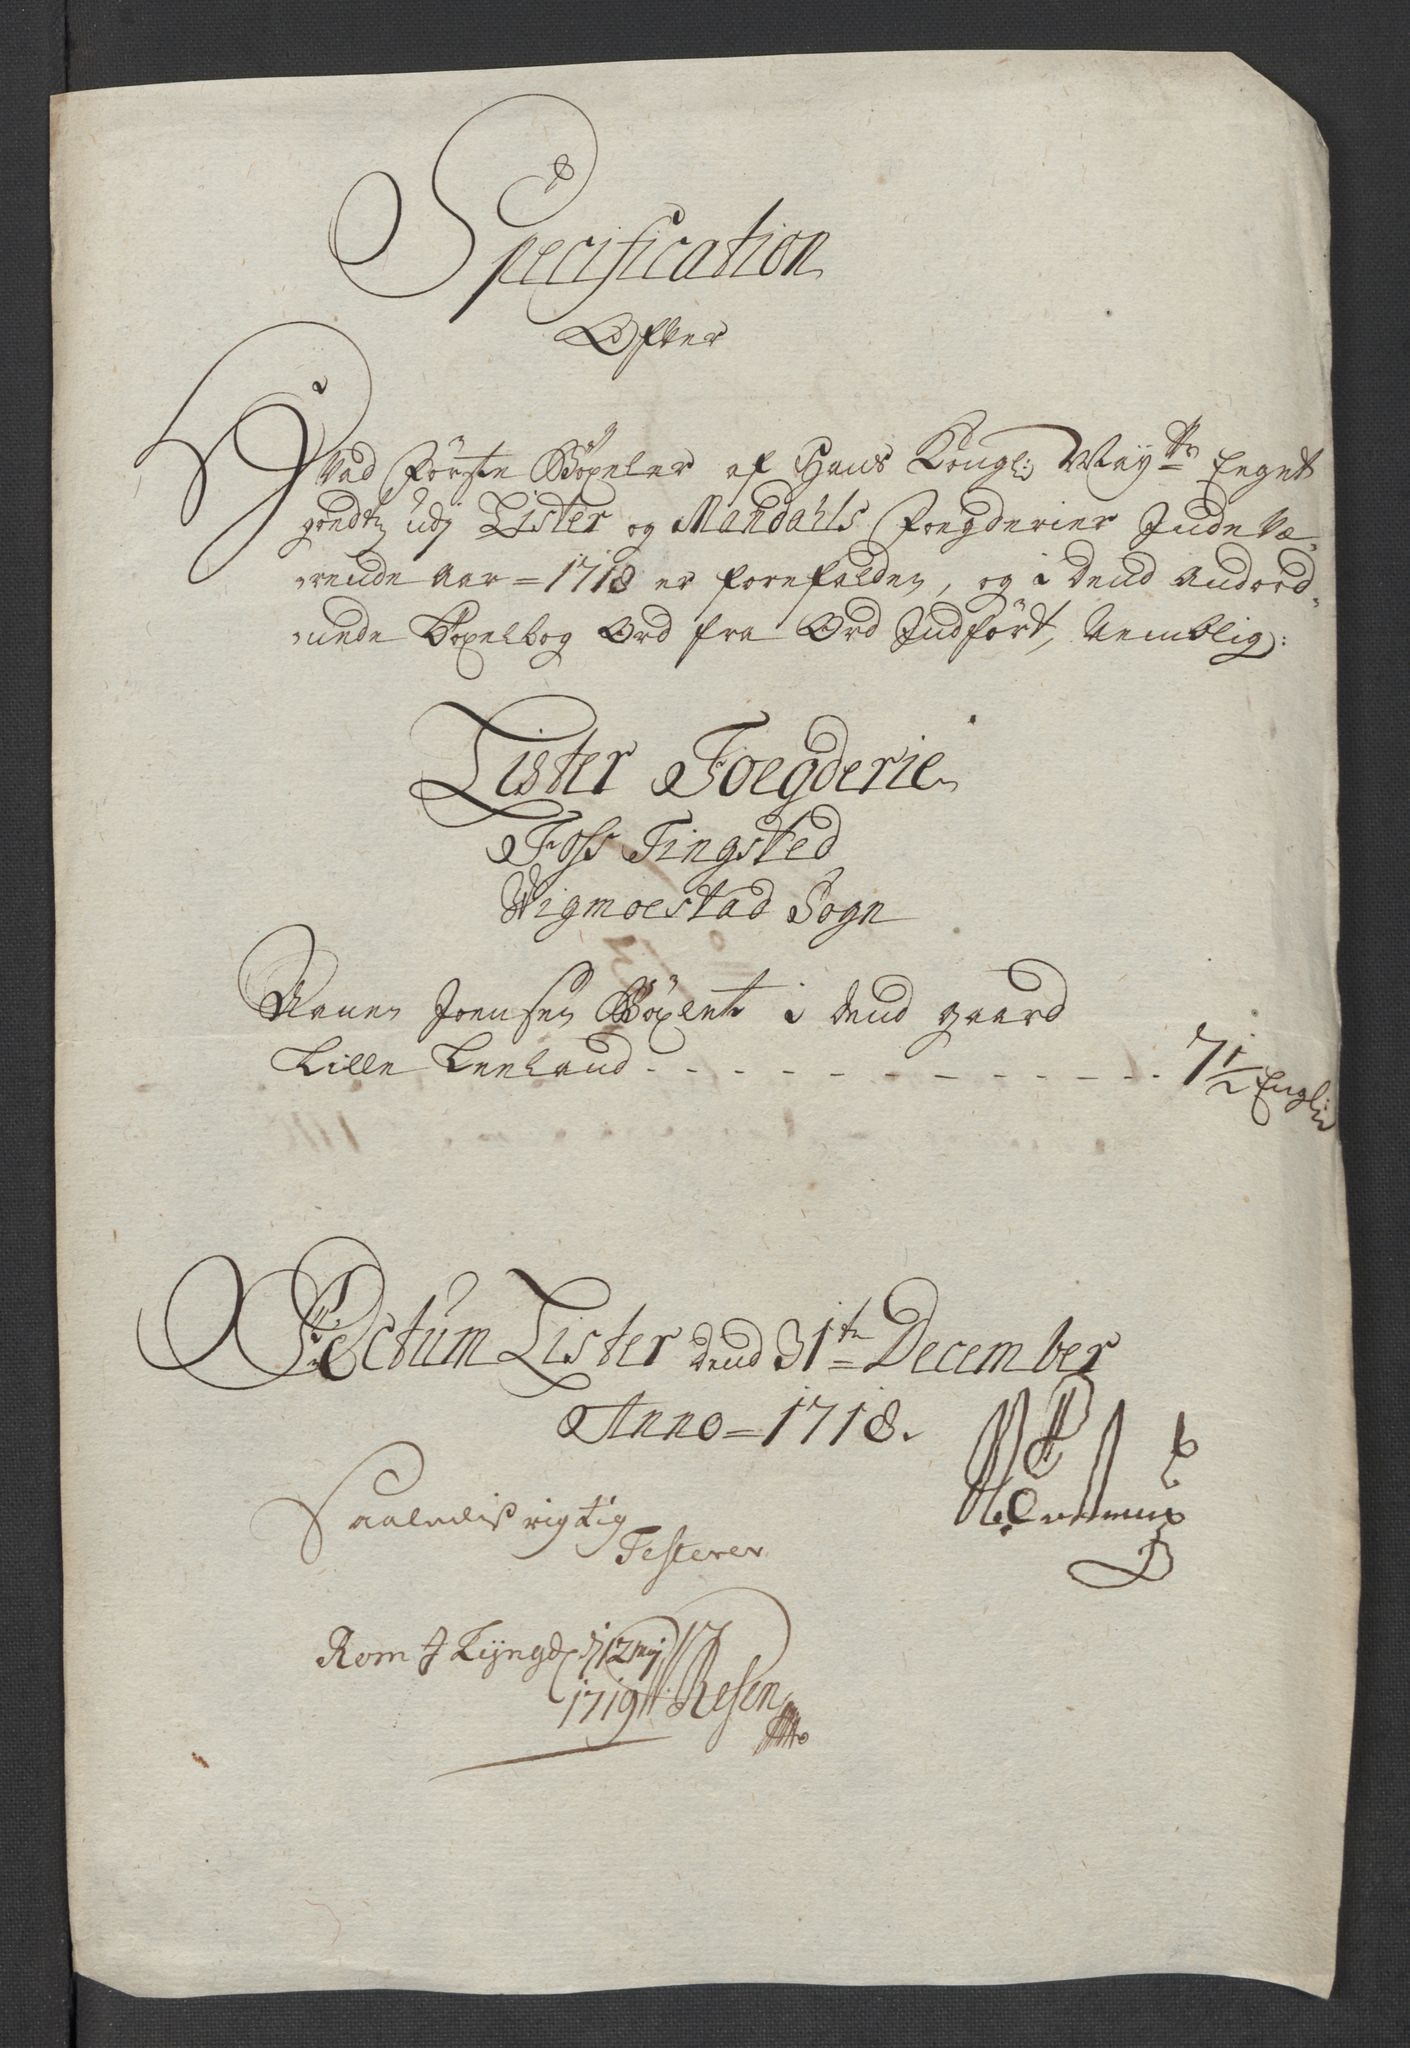 Specification
Ofver
Hvad Förste Böxeler af Hans Kongl: May:tts Eeget
goedtz udj Lister og Mandahls Foegderier Indevæ-
rende Aar = 1718 er forefalden, og i dend Anord-
nede Böxelbog Ord fra Ord Indfört, Nemblig:
Lister Foegderie
Foss Tingsted
Wigmoestad Sogn
Aanen Joensen Böxelt i dend gaard
Lille Leeland - - - - - - - - - - - - 7 1/2 Engl:
Actum Lister dend 31te December
Anno = 1718.
Saaledis rigtig
Testerer
Rom Tyngd 12 Maj
1719 Resen